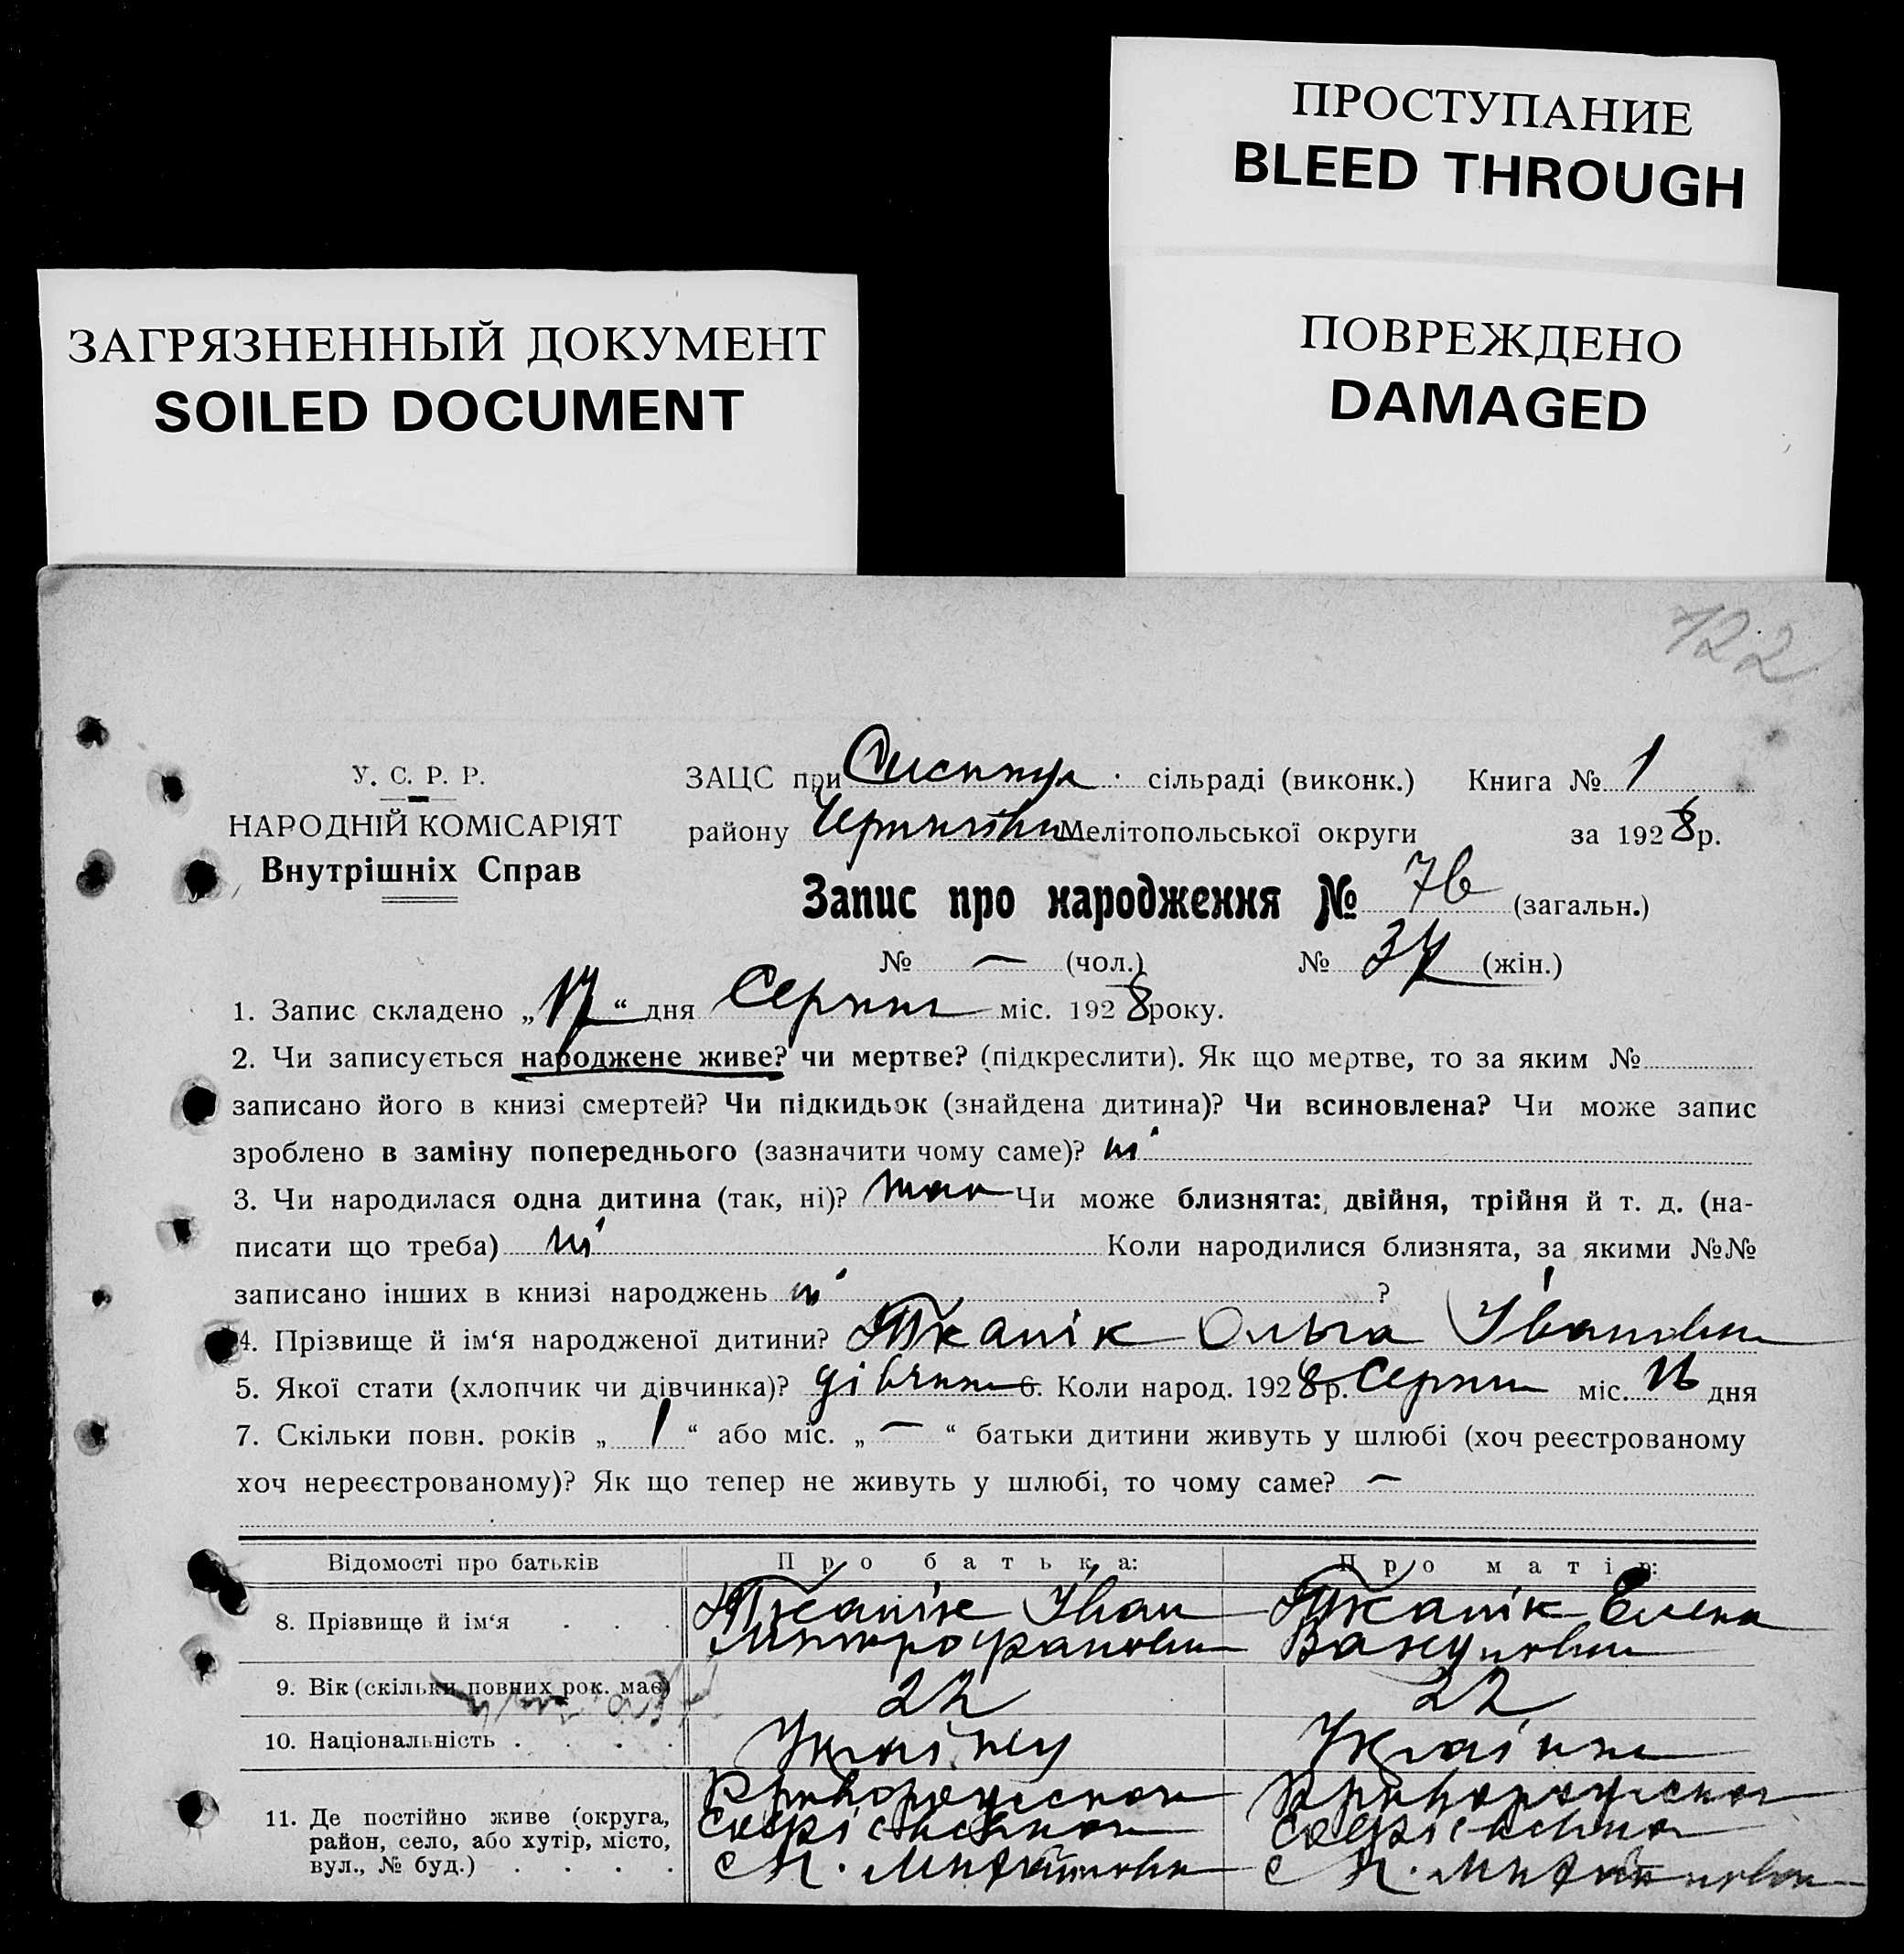 ПРОСТУПАНИЕ
BLEED THROUGH
ЗАГРЯЗНЕННЫЙ ДОКУМЕНТ
SOILED DOCUMENT
ПОВРЕЖДЕНО
DAMAGED
122
У. С. Р. Р.
НАРОДНІЙ КОМІСАРІЯТ
Внутрішніх Справ
ЗАЦС при сільраді (виконк.) Книга № 1
району Мелітопольської округи за 1928 р.
Запис про народження № 76 (загальн.)
№ — (чол.) № 37 (жін.)
1. Запис складено „17“ дня Серпня міс. 1928 року.
2. Чи записується народжене живе? чи мертве? (підкреслити). Як що мертве, то за яким №
записано його в книзі смертей? Чи підкидьок (знайдена дитина)? Чи всиновлена? Чи може запис
зроблено в заміну попереднього (зазначити чому саме)? ні
3. Чи народилася одна дитина (так, ні)? так Чи може близнята: двійня, трійня й т. д. (на-
писати що треба) ні Коли народилися близнята, за якими №№
записано інших в книзі народжень ні ?
4. Прізвище й ім‘я народженої дитини? Ткапік Ольга Івановна
5. Якої стати (хлопчик чи дівчинка)? дівчина 6. Коли народ. 1928 р. Серпня міс. 16 дня
7. Скільки повн. років „ 1 “ або міс. „ — “ батьки дитини живуть у шлюбі (хоч реєстрованому
хоч нереєстрованому)? Як що тепер не живуть у шлюбі, то чому саме? —
Відомості про батьків Про батька: Про матір:
8. Прізвище й ім‘я . . . Ткапік Іван Ткапік Елена
9. Вік (скільки повних рок. має) 22 22
10. Національність . . . .
11. Де постійно живе (округа,
район, село, або хутір, місто,
вул., № буд.) . . . .